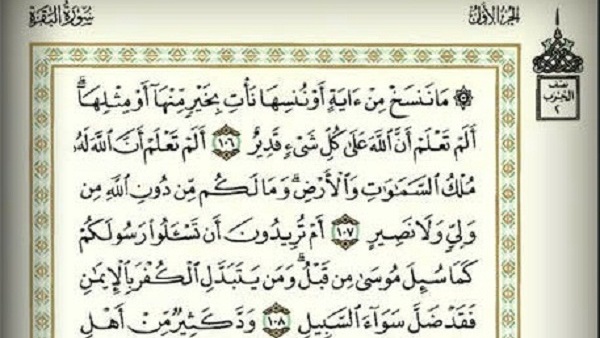 سُورَةُ البَقَرَةِ
الجُزْءُ الأَوَّلُ
نصف
الحزب
٢
۞ مَا نَنسَخْ مِنْ ءَايَةٍ أَوْ نُنسِهَا نَأْتِ بِخَيْرٍ مِّنْهَآ أَوْ مِثْلِهَآ ۗ
أَلَمْ تَعْلَمْ أَنَّ ٱللَّهَ عَلَىٰ كُلِّ شَىْءٍ قَدِيرٌ ١٠٦ أَلَمْ تَعْلَمْ أَنَّ ٱللَّهَ لَهُۥ
مُلْكُ ٱلسَّمَـٰوَٰتِ وَٱلْأَرْضِ ۗ وَمَا لَكُم مِّن دُونِ ٱللَّهِ مِن
وَلِىٍّ وَلَا نَصِيرٍ ١٠٧ أَمْ تُرِيدُونَ أَن تَسْـَٔلُوا۟ رَسُولَكُمْ
كَمَا سُئِلَ مُوسَىٰ مِن قَبْلُ ۗ وَمَن يَتَبَدَّلِ ٱلْكُفْرَ بِٱلْإِيمَـٰنِ
فَقَدْ ضَلَّ سَوَآءَ ٱلسَّبِيلِ ١٠٨ وَدَّ كَثِيرٌ مِّنْ أَهْلِ